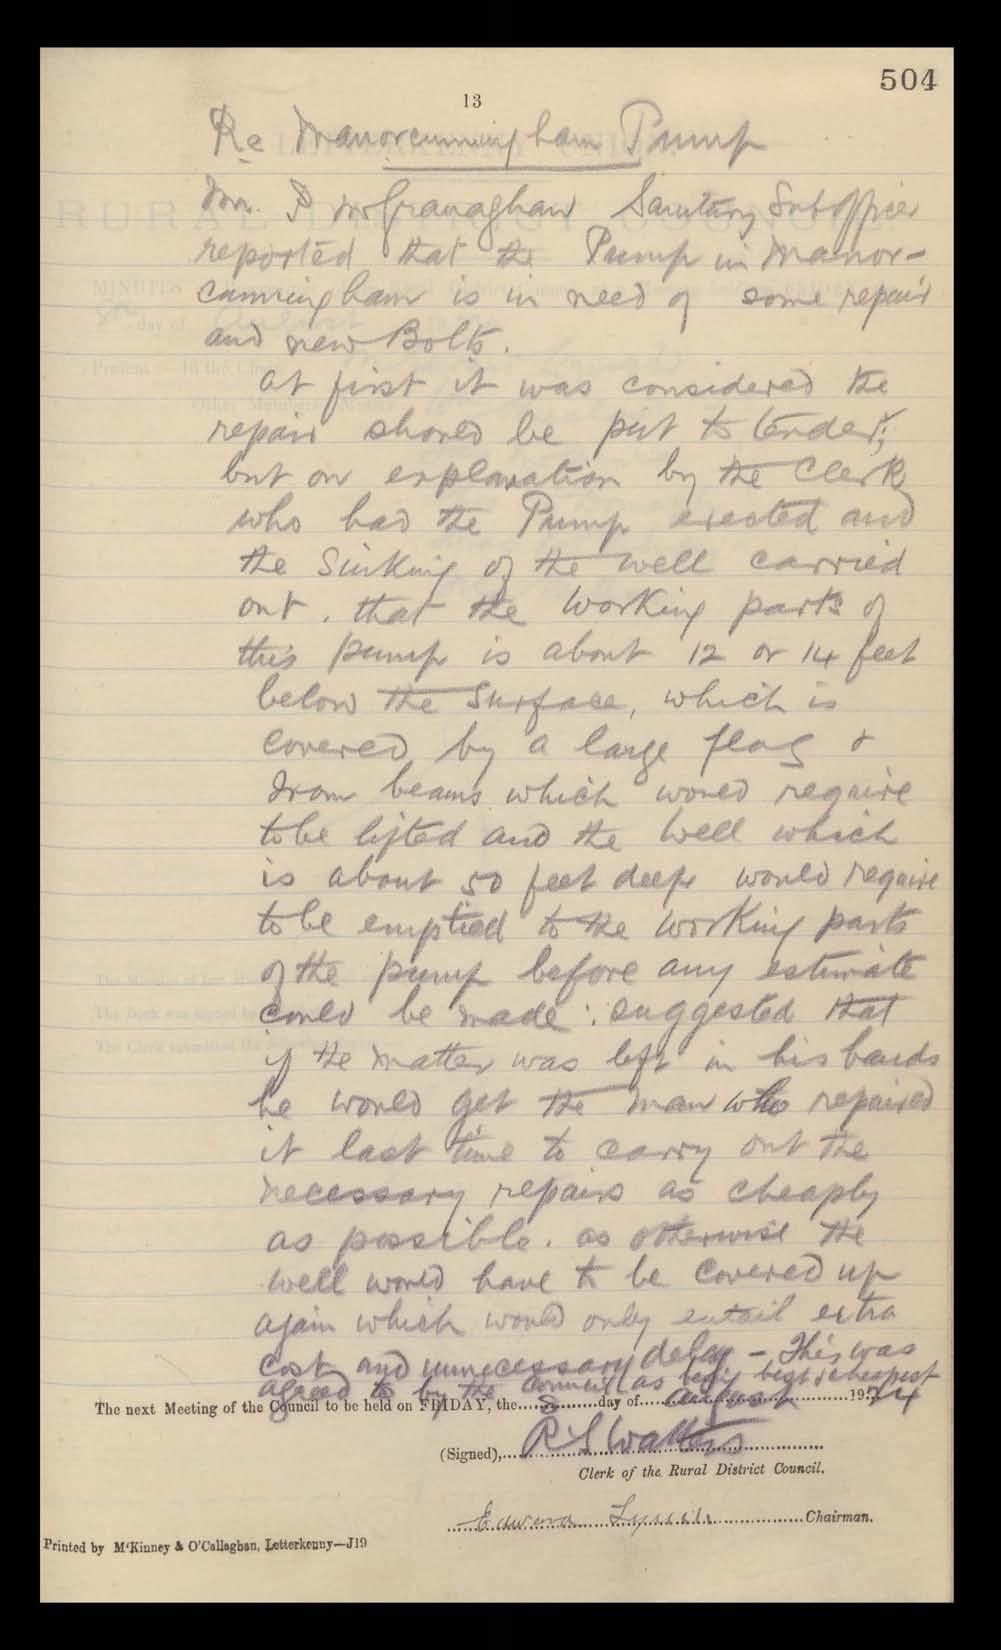 504
13
Re Manorcunningham Pump
Mr. P McGranaghan Sanitary Sub officer
reported that the Pump in Manor-
cunningham is in need of some repair
and new Bolts.
at first it was considered the
repair should be put to tender;
but on explanation by the Clerk
who had the Pump erected and
the Sinking of the well carried
out, that the Working parts of
this pump is about 12 or 14 feet
below the Surface, which is
covered by a large flag &
Iron beams which would require
to be lifted and the Well which
is about 50 feet deep would require
to be emptied to the Working parts
of the pump before any estimate
could be made: suggested that
if the matter was left in his hands
he would get the man who repaired
it last time to carry out the
necessary repairs as cheaply
as possible. as otherwise the
well would have to be covered up
again which would only entail extra
cost and unnecessary delay - This was
agreed to by the Council as being best & cheapest
The next Meeting of the Council to be held on FRIDAY, the 8 day of August 1924
(Signed), R S Watters
Clerk of the Rural District Council.
Edward Lynch Chairman.
Printed by M'Kinney & O'Callaghan, Letterkenny—J19